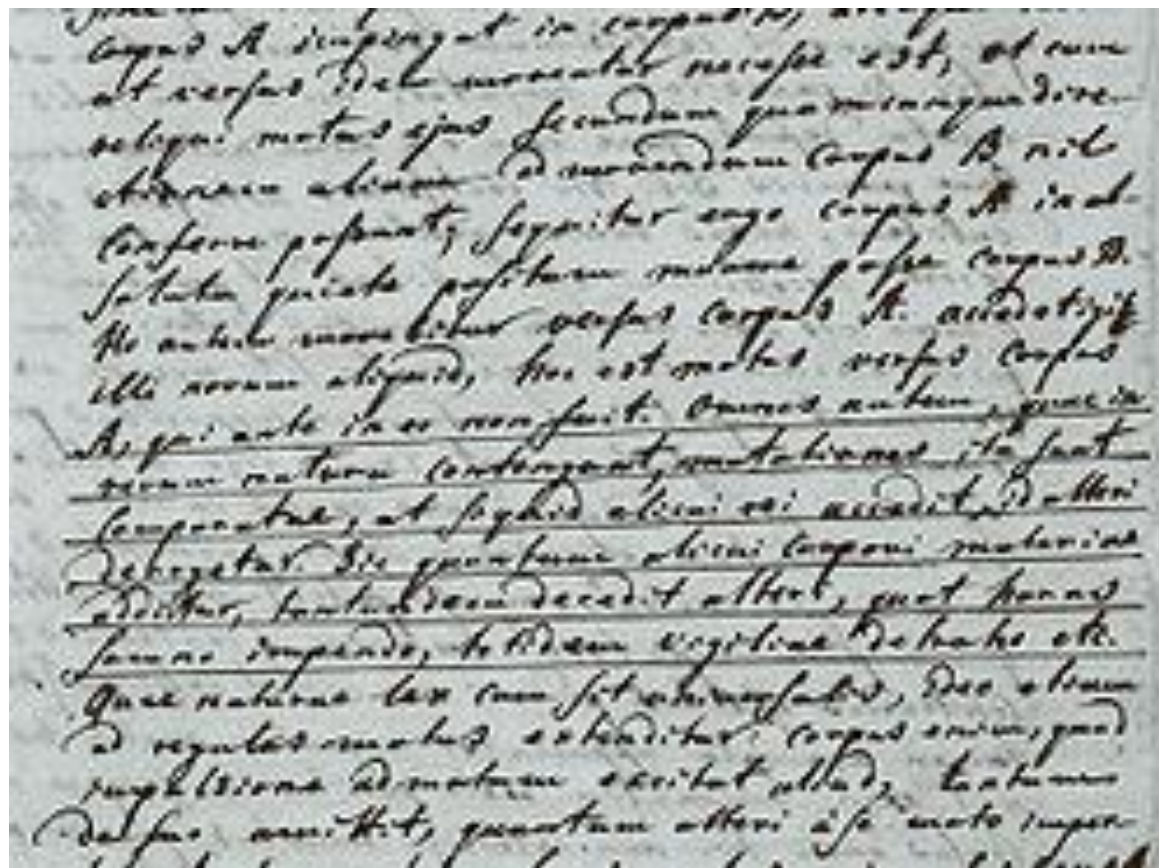 corpus A impingat in corpus B,
ut versus idem moveatur necesse est, et cum
reliqui motus ejus secundum quamcunque dire-
ctionem aliam ad movendum corpus B nil
conferre possunt; sequitur ergo corpus A in ab-
soluta quiete positum movere posse corpus B.
Hoc autem movebitur versus corpus A. accedet igit
illi novum aliquid, hoc est motus versus corpus
A, qui ante in eo non fuit. Omnes autem, quae in
rerum natura contingunt, mutationes ita sunt
comparatae, ut si quid alicui rei accedit, id alteri
derogetur. Sic quantum alicui corpori materiae
additur, tantundem decedit alteri, quot horas
somno impendo, totidem vigiliae detraho etc.
Quae naturae lex cum sit universalis, ideo etiam
ad regulas motus extenditur: corpus enim, quod
impulsione ad motum excitat aliud, tantum
de suo amittit, quantum alteri à se moto imper-